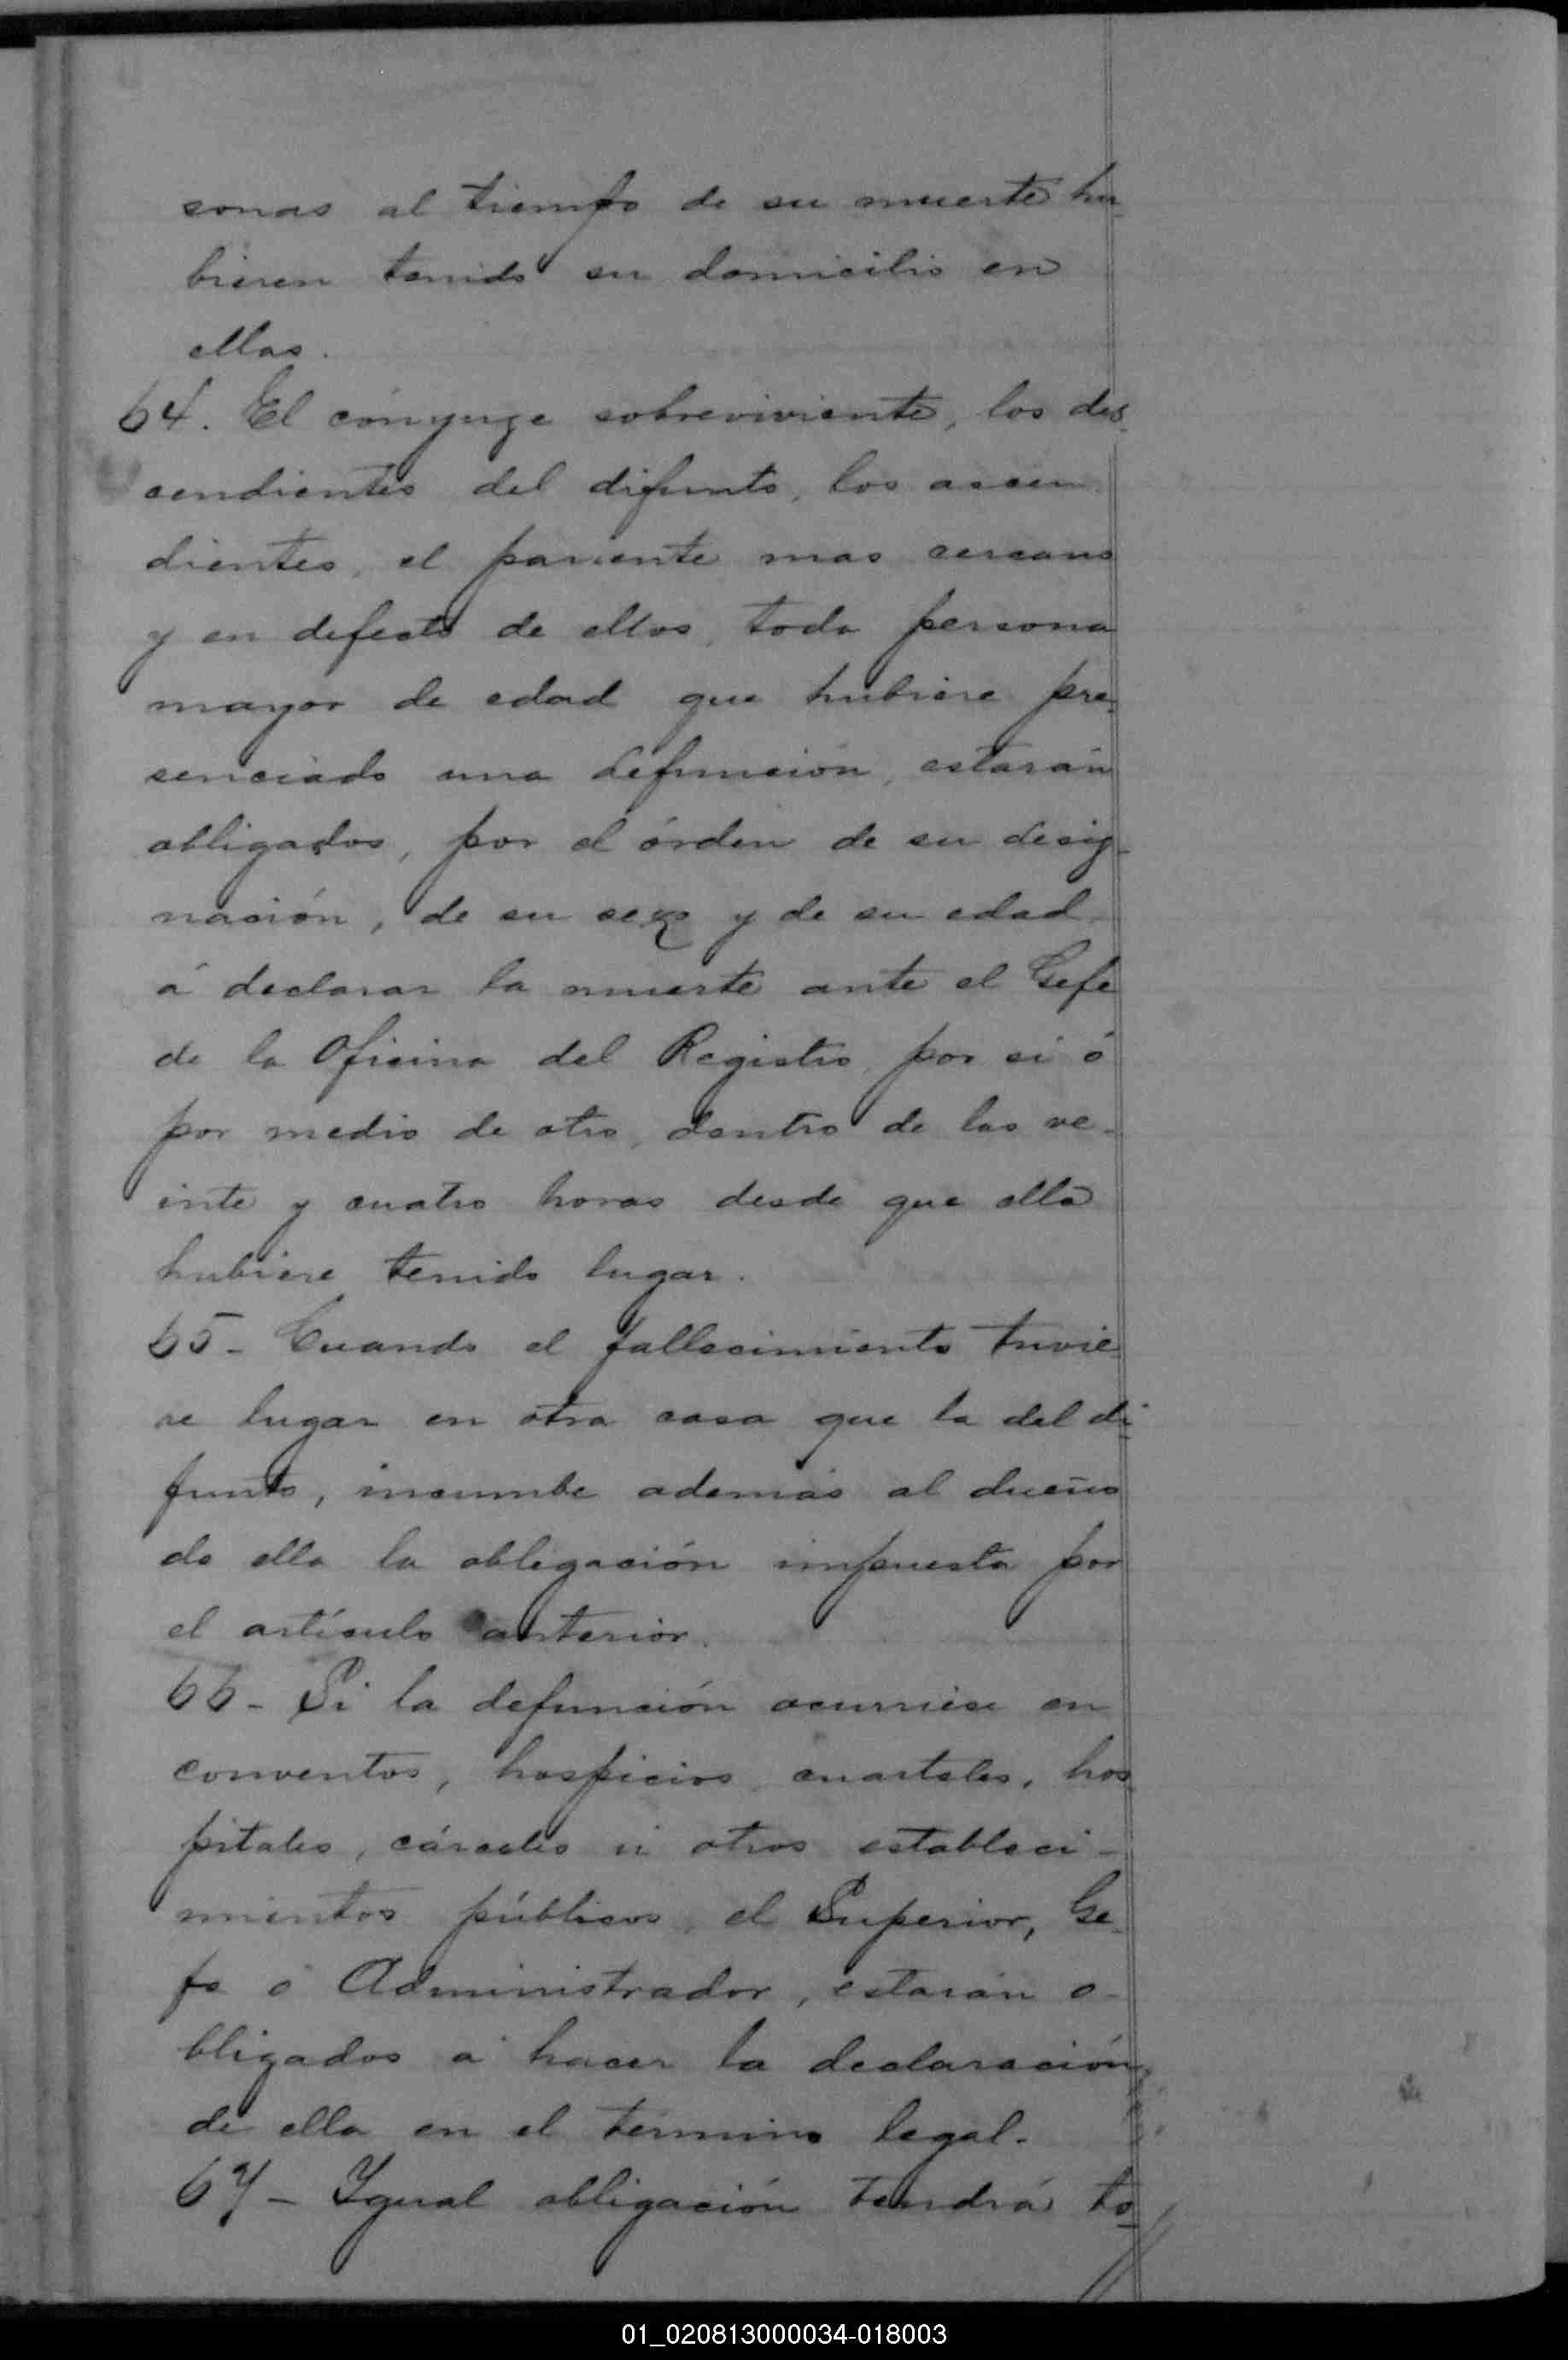 sonas al tiempo de su muerte hu-
bieren tenido su domicilio en
ellas.
64. El cónyuge sobreviviente, los des-
cendientes del difunto, los ascen-
dientes, el pariente mas cercano
y en defecto de ellos, toda persona
mayor de edad que hubiere pre-
senciado una defunción, estarán
obligados, por el órden de su desig-
nación, de su sexo y de su edad
á declarar la muerte ante el Gefe
de la Oficina del Registro, por si ó
por medio de otro, dentro de las ve-
inte y cuatro horas desde que ella
hubiere tenido lugar.
65- Cuando el fallecimiento tuvie-
re lugar en otra casa que la del di-
funto, incumbe además al dueño
de ella la obligación impuesta por
el artículo anterior.
66- Si la defunción ocurriese en
conventos, hospicios, cuarteles, hos
pitales, cárceles ú otros estableci-
mientos públicos, el Superior, Ge-
fe ó Administrador, estarán o-
bligados á hacer la declaración
de ella en el término legal.
67- Igual obligación tendrá to-
01_020813000034-018003